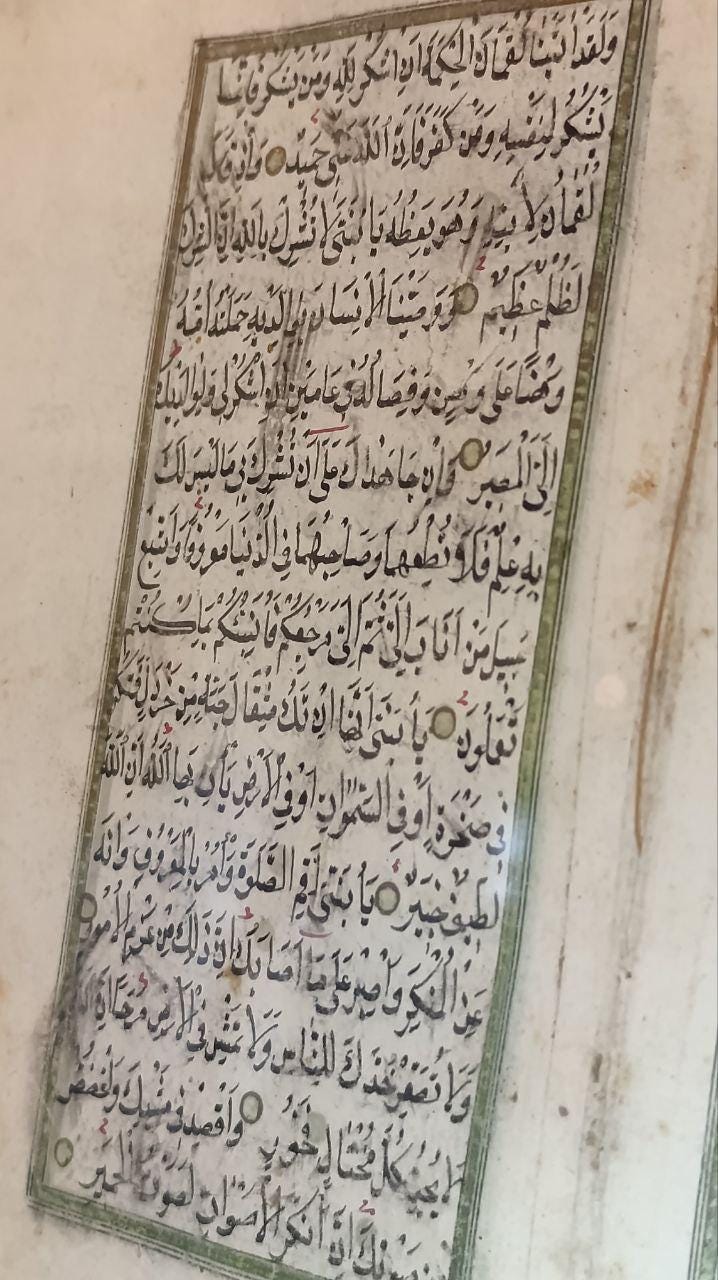 وَلَقَدْ اٰتَيْنَا لُقْمَانَ الْحِكْمَةَ اَنِ اشْكُرْ لِلّٰهِ وَمَنْ يَشْكُرْ فَاِنَّمَا
يَشْكُرُ لِنَفْسِهِ وَمَنْ كَفَرَ فَاِنَّ اللّٰهَ غَنِىٌّ حَمِيدٌ وَاِذْ قَالَ
لُقْمَانُ لِابْنِهِ وَهُوَ يَعِظُهُ يَا بُنَىَّ لَا تُشْرِكْ بِاللّٰهِ اِنَّ الشِّرْكَ
لَظُلْمٌ عَظِيمٌ وَوَصَّيْنَا الْاِنْسَانَ بِوَالِدَيْهِ حَمَلَتْهُ اُمُّهُ
وَهْنًا عَلٰى وَهْنٍ وَفِصَالُهُ فِى عَامَيْنِ اَنِ اشْكُرْ لِى وَلِوَالِدَيْكَ
اِلَىَّ الْمَصِيرُ وَاِنْ جَاهَدَاكَ عَلٰى اَنْ تُشْرِكَ بِى مَا لَيْسَ لَكَ
بِهِ عِلْمٌ فَلَا تُطِعْهُمَا وَصَاحِبْهُمَا فِى الدُّنْيَا مَعْرُوفًا وَاتَّبِعْ
سَبِيلَ مَنْ اَنَابَ اِلَىَّ ثُمَّ اِلَىَّ مَرْجِعُكُمْ فَاُنَبِّئُكُمْ بِمَا كُنْتُمْ
تَعْمَلُونَ يَا بُنَىَّ اِنَّهَا اِنْ تَكُ مِثْقَالَ حَبَّةٍ مِنْ خَرْدَلٍ فَتَكُنْ
فِى صَخْرَةٍ اَوْ فِى السَّمٰوَاتِ اَوْ فِى الْاَرْضِ يَأْتِ بِهَا اللّٰهُ اِنَّ اللّٰهَ
لَطِيفٌ خَبِيرٌ يَا بُنَىَّ اَقِمِ الصَّلٰوةَ وَأْمُرْ بِالْمَعْرُوفِ وَانْهَ
عَنِ الْمُنْكَرِ وَاصْبِرْ عَلٰى مَا اَصَابَكَ اِنَّ ذٰلِكَ مِنْ عَزْمِ الْاُمُورِ
وَلَا تُصَعِّرْ خَدَّكَ لِلنَّاسِ وَلَا تَمْشِ فِى الْاَرْضِ مَرَحًا اِنَّ اللّٰهَ
لَا يُحِبُّ كُلَّ مُخْتَالٍ فَخُورٍ وَاقْصِدْ فِى مَشْيِكَ وَاغْضُضْ
مِنْ صَوْتِكَ اِنَّ اَنْكَرَ الْاَصْوَاتِ لَصَوْتُ الْحَمِيرِ